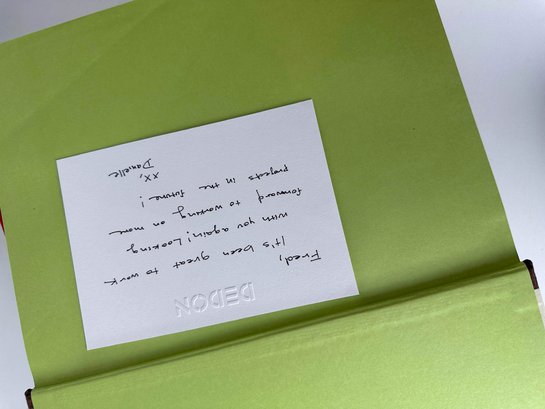 DEDON
Fred,
It's been great to work
with you again! Looking
forward to working on more
projects in the future!
xx,
Danielle